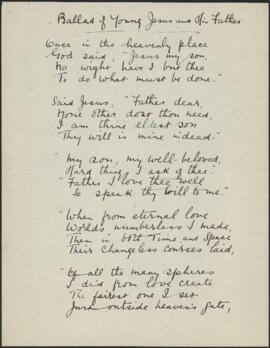 Ballad of Young Jesus and His Father
Once in the heavenly place
God said, "Jesus my son,
No wight have I but thee
To do what must be done."
Said Jesus, "Father dear,
None other dost thou need,
I am thine eldest son
Thy will is mine indeed."
"My son, my well-beloved,
Hard thing I ask of thee:"
"Father I love thee well
So speak thy will to me."
"When from eternal love
Worlds numberless I made,
Then in both Time and Space
Their changeless courses laid,
"Of all the many spheres
I did from love create
The fairest one I set
Just outside heaven's gate,